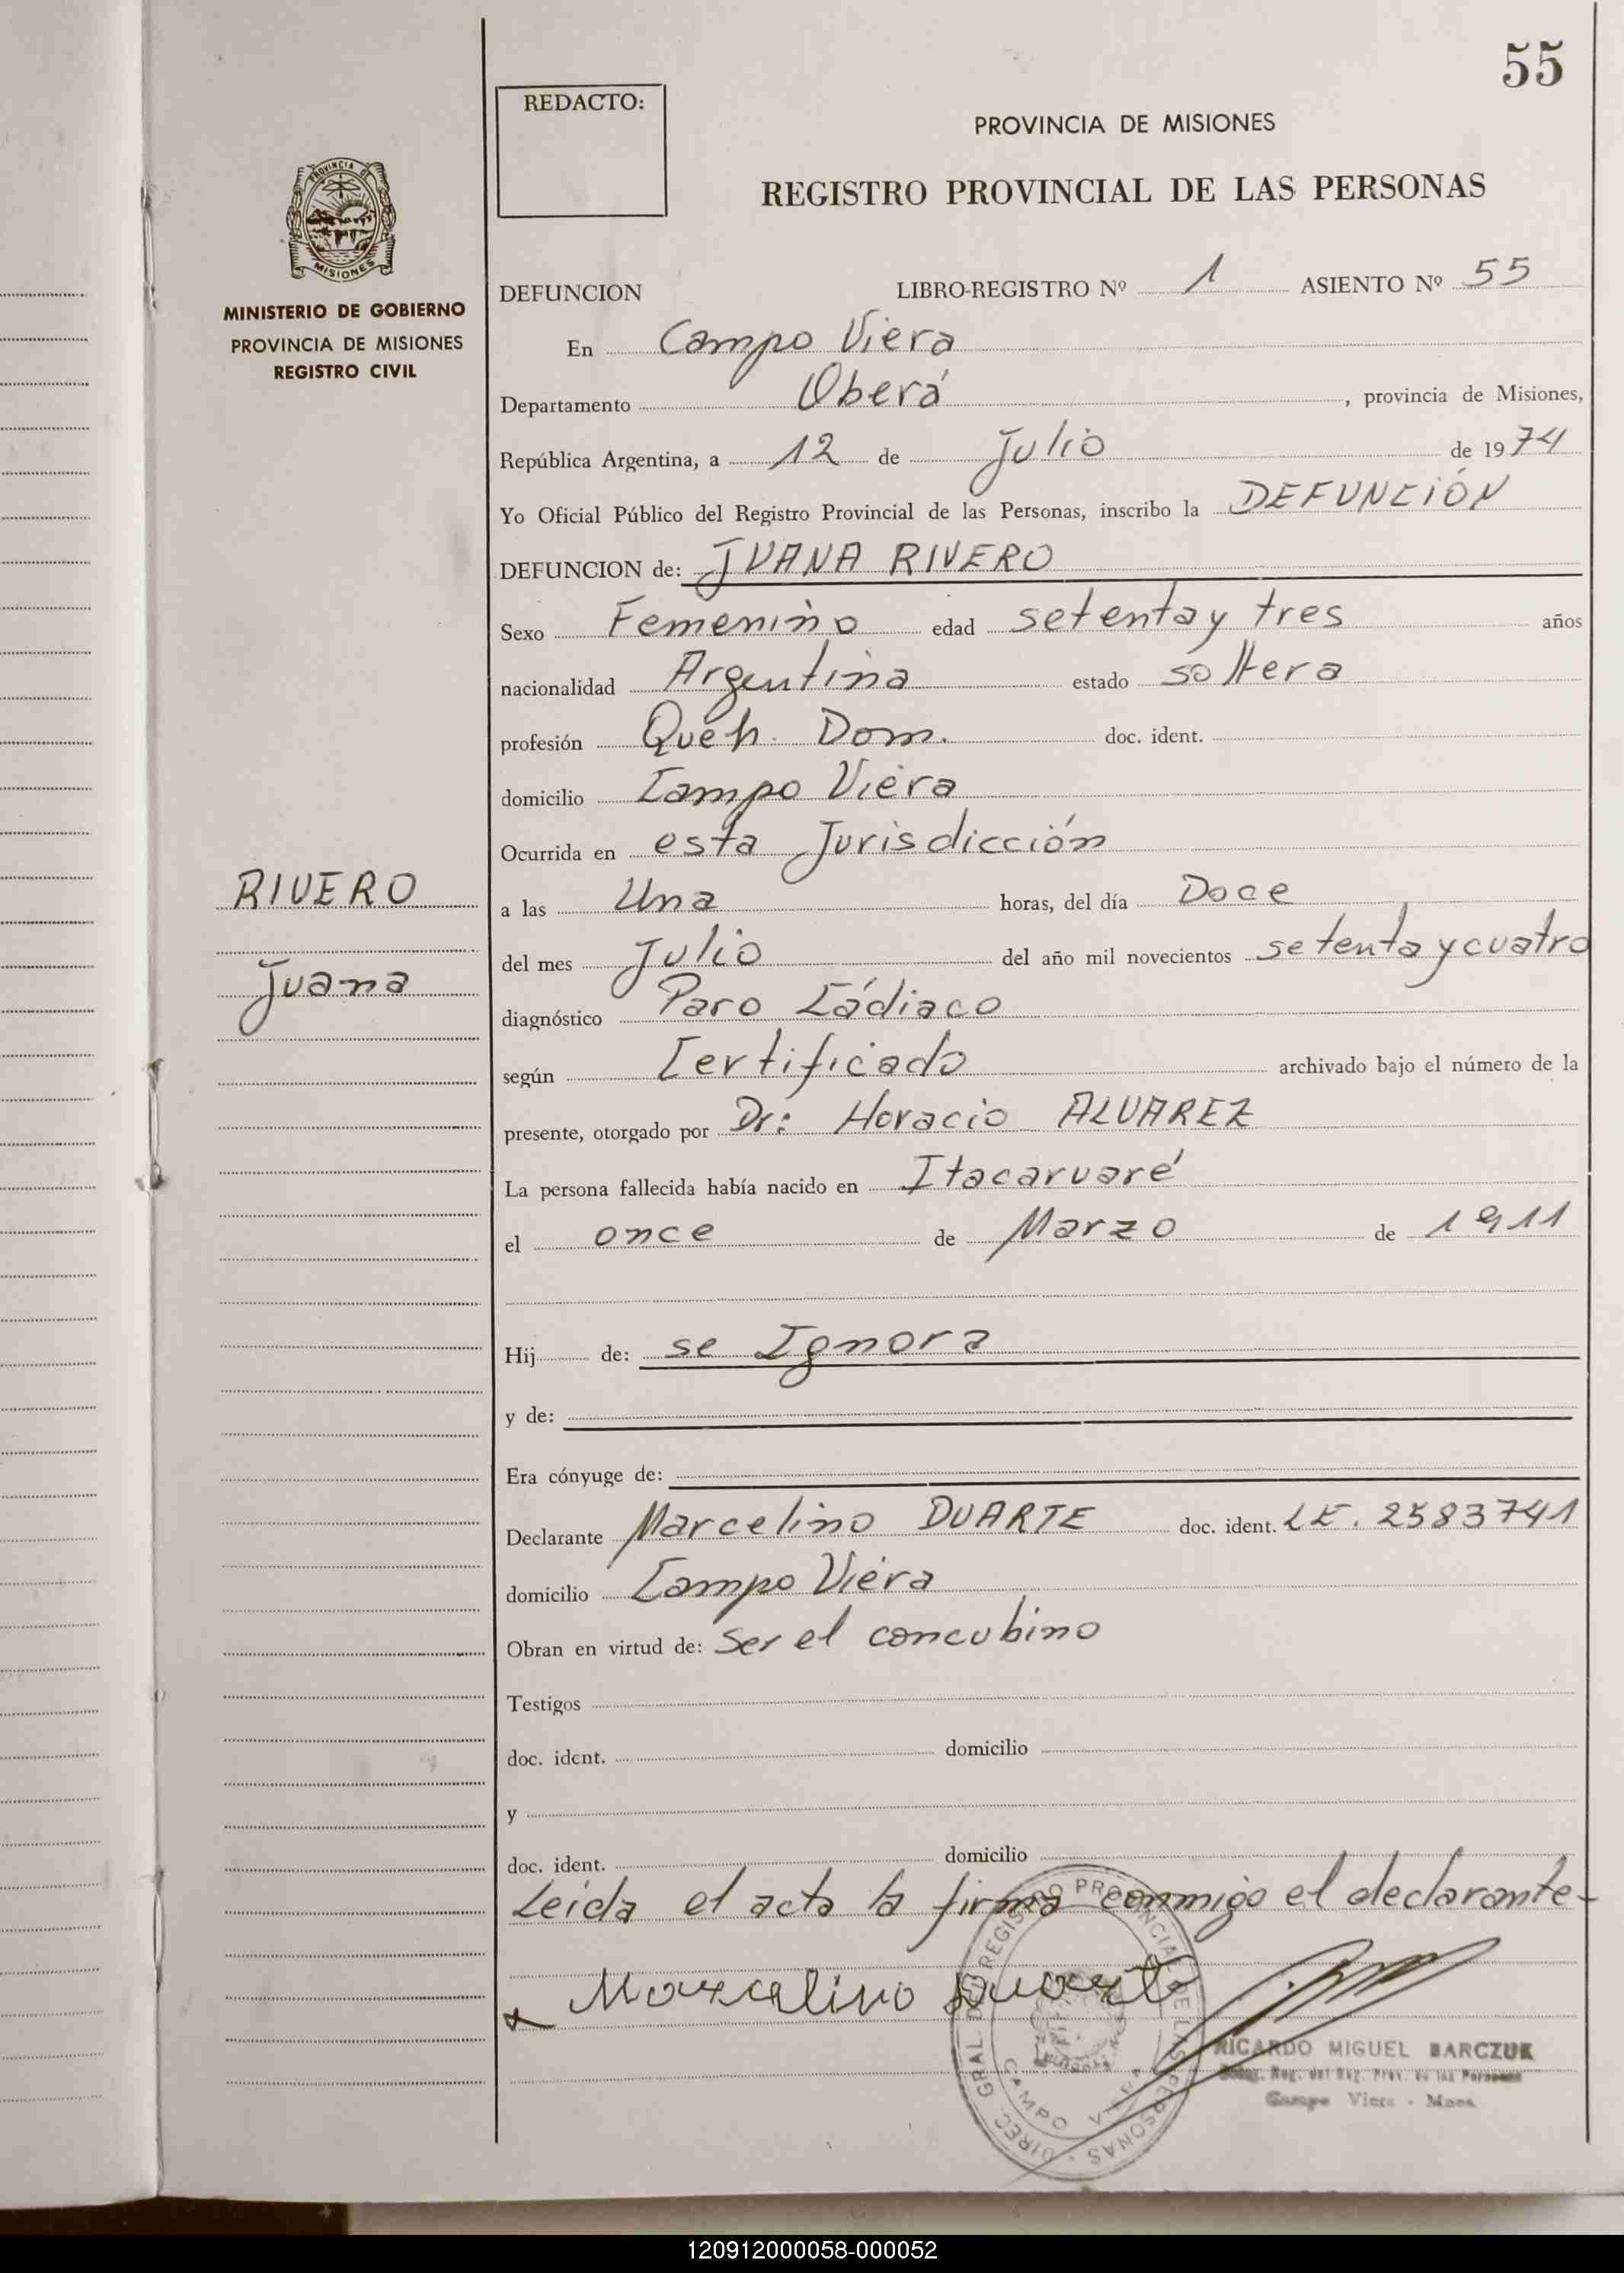 55
REDACTO:
PROVINCIA DE MISIONES
REGISTRO PROVINCIAL DE LAS PERSONAS
PROVINCIA DE
MISIONES
MINISTERIO DE GOBIERNO
PROVINCIA DE MISIONES
REGISTRO CIVIL
DEFUNCION LIBRO-REGISTRO Nº 1 ASIENTO Nº 55
En Campo Viera
Departamento Oberá, provincia de Misiones,
República Argentina, a 12 de Julio de 1974
Yo Oficial Público del Registro Provincial de las Personas, inscribo la DEFUNCIÓN
DEFUNCION de: JUANA RIVERO
Sexo Femenino edad setenta y tres años
nacionalidad Argentina estado soltera
profesión Queh. Dom. doc. ident.
domicilio Campo Viera
Ocurrida en esta Jurisdicción
RIVERO
Juana
a las Una horas, del día Doce
del mes Julio del año mil novecientos setenta y cuatro
diagnóstico Paro Cádiaco
según Certificado archivado bajo el número de la
presente, otorgado por Dr: Horacio ALVAREZ
La persona fallecida había nacido en Itacaruaré
el once de Marzo de 1911
Hij de: se Ignora
y de:
Era cónyuge de:
Declarante Marcelino DUARTE doc. ident. LE. 2583741
domicilio Campo Viera
Obran en virtud de: Ser el concubino
Testigos
doc. ident. domicilio
y
doc. ident. domicilio
Leida el acta la firma conmigo el declarante-
x Marcelino Duarte
DIREC. GRAL. DEL REGISTRO PROVINCIAL DE LAS PERSONAS
CAMPO VIERA
RICARDO MIGUEL BARCZUK
Reg. del Reg. Prov. de las Personas
Campo Viera - Mnes.
120912000058-000052